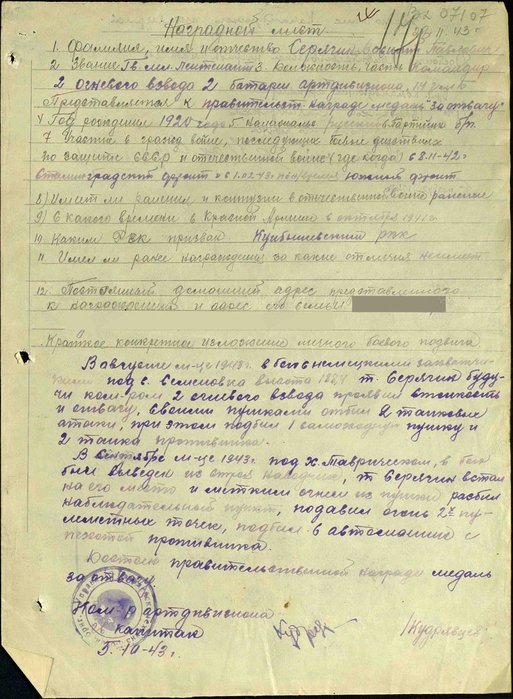 Наградной лист
1. Фамилия, имя и отчество Серягин Павлович
2. Звание Гв. мл. лейтенант 3. Должность, часть Командир
2 огневого взвода 2 батареи артдивизиона,
Представляется к правительст. награде медаль "За отвагу"
4 Год рождения 1920 года 5. Национальн. русский 6. Партийн. б/п.
7. Участие в гражд. войне, последующих боевых действиях
по защите СССР и отечественной войне (где когда) с 8.11-42 г.
Сталинградский фронт с 1.02.43 Южный фронт
8) Имеет ли ранения и контузии в отечественной войне
9) С какого времени в Красной Армии с октября 1941 г.
10 Каким РВК призван Куйбышевским рвк
11 Имел ли ранее награждения за какие отличия не имеет
12. Постоянный домашний адрес представляемого
к награждению и адрес его семьи
Краткое конкретное изложение личного боевого подвига
В августе м-це 1943 г. в бою с немецкими захватчи-
ками под с. Семеновка высота т. Серягин буду-
чи ком-ром 2 огневого взвода проявил стойкость
и отвагу, своими пушками отбил 2 танковые
атаки, при этом подбил 1 самоходную пушку и
2 танка противника.
В сентябре м-це 1943 г. под х. Таврическом, в бою
был выведен из строя наводчик, т Серягин встал
на его место и метким огнем из пушки разбил
наблюдательный пункт, подавил огонь 2х пу-
леметных точек, подбил 6 автомашин с
пехотой противника.
Достоин правительственной награде медаль
за отвагу.
Ком-р артдивизиона
капитан
5.10-43 г.
/Кудрявцев